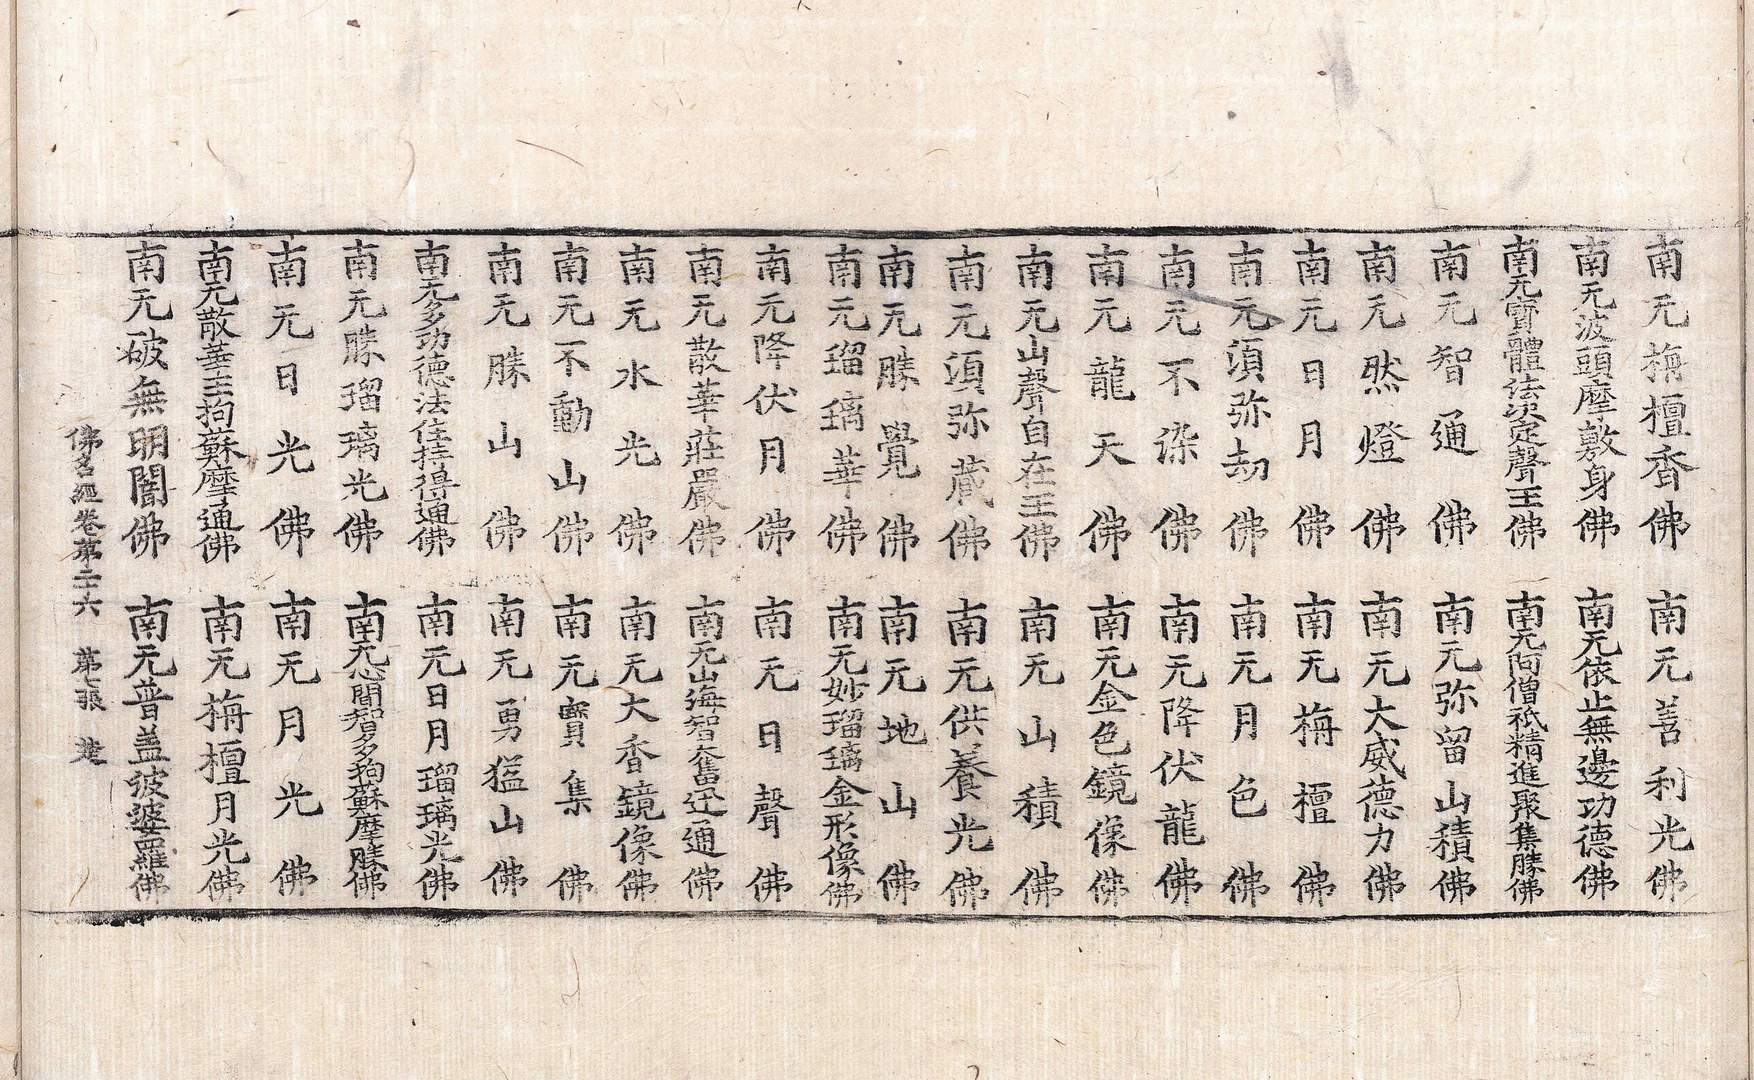 南无栴檀香佛 南无善利光佛
南无波頭摩敷身佛 南无依止無邊功德佛
南无寶體法決定聲王佛 南无阿僧祇精進聚集勝佛
南无智通佛 南无弥留山積佛
南无然燈佛 南无大威德力佛
南无日月佛 南无栴檀佛
南无須弥劫佛 南无月色佛
南无不染佛 南无降伏龍佛
南无龍天佛 南无金色鏡像佛
南无山聲自在王佛 南无山積佛
南无須弥藏佛 南无供養光佛
南无勝覺佛 南无地山佛
南无瑠璃華佛 南无妙瑠璃金形像佛
南无降伏月佛 南无日聲佛
南无散華莊嚴佛 南无山海智奮迅通佛
南无水光佛 南无大香鏡像佛
南无不動山佛 南无寶集佛
南无勝山佛 南无勇猛山佛
南无多功德法住持得通佛 南无日月瑠璃光佛
南无勝瑠璃光佛 南无心間智多拘蘇摩勝佛
南无日光佛 南无月光佛
南无散華王拘蘇摩通佛 南无栴檀月光佛
南无破無明闇佛 南无普盖波婆羅佛
佛名經卷第二十六 第七張 楚